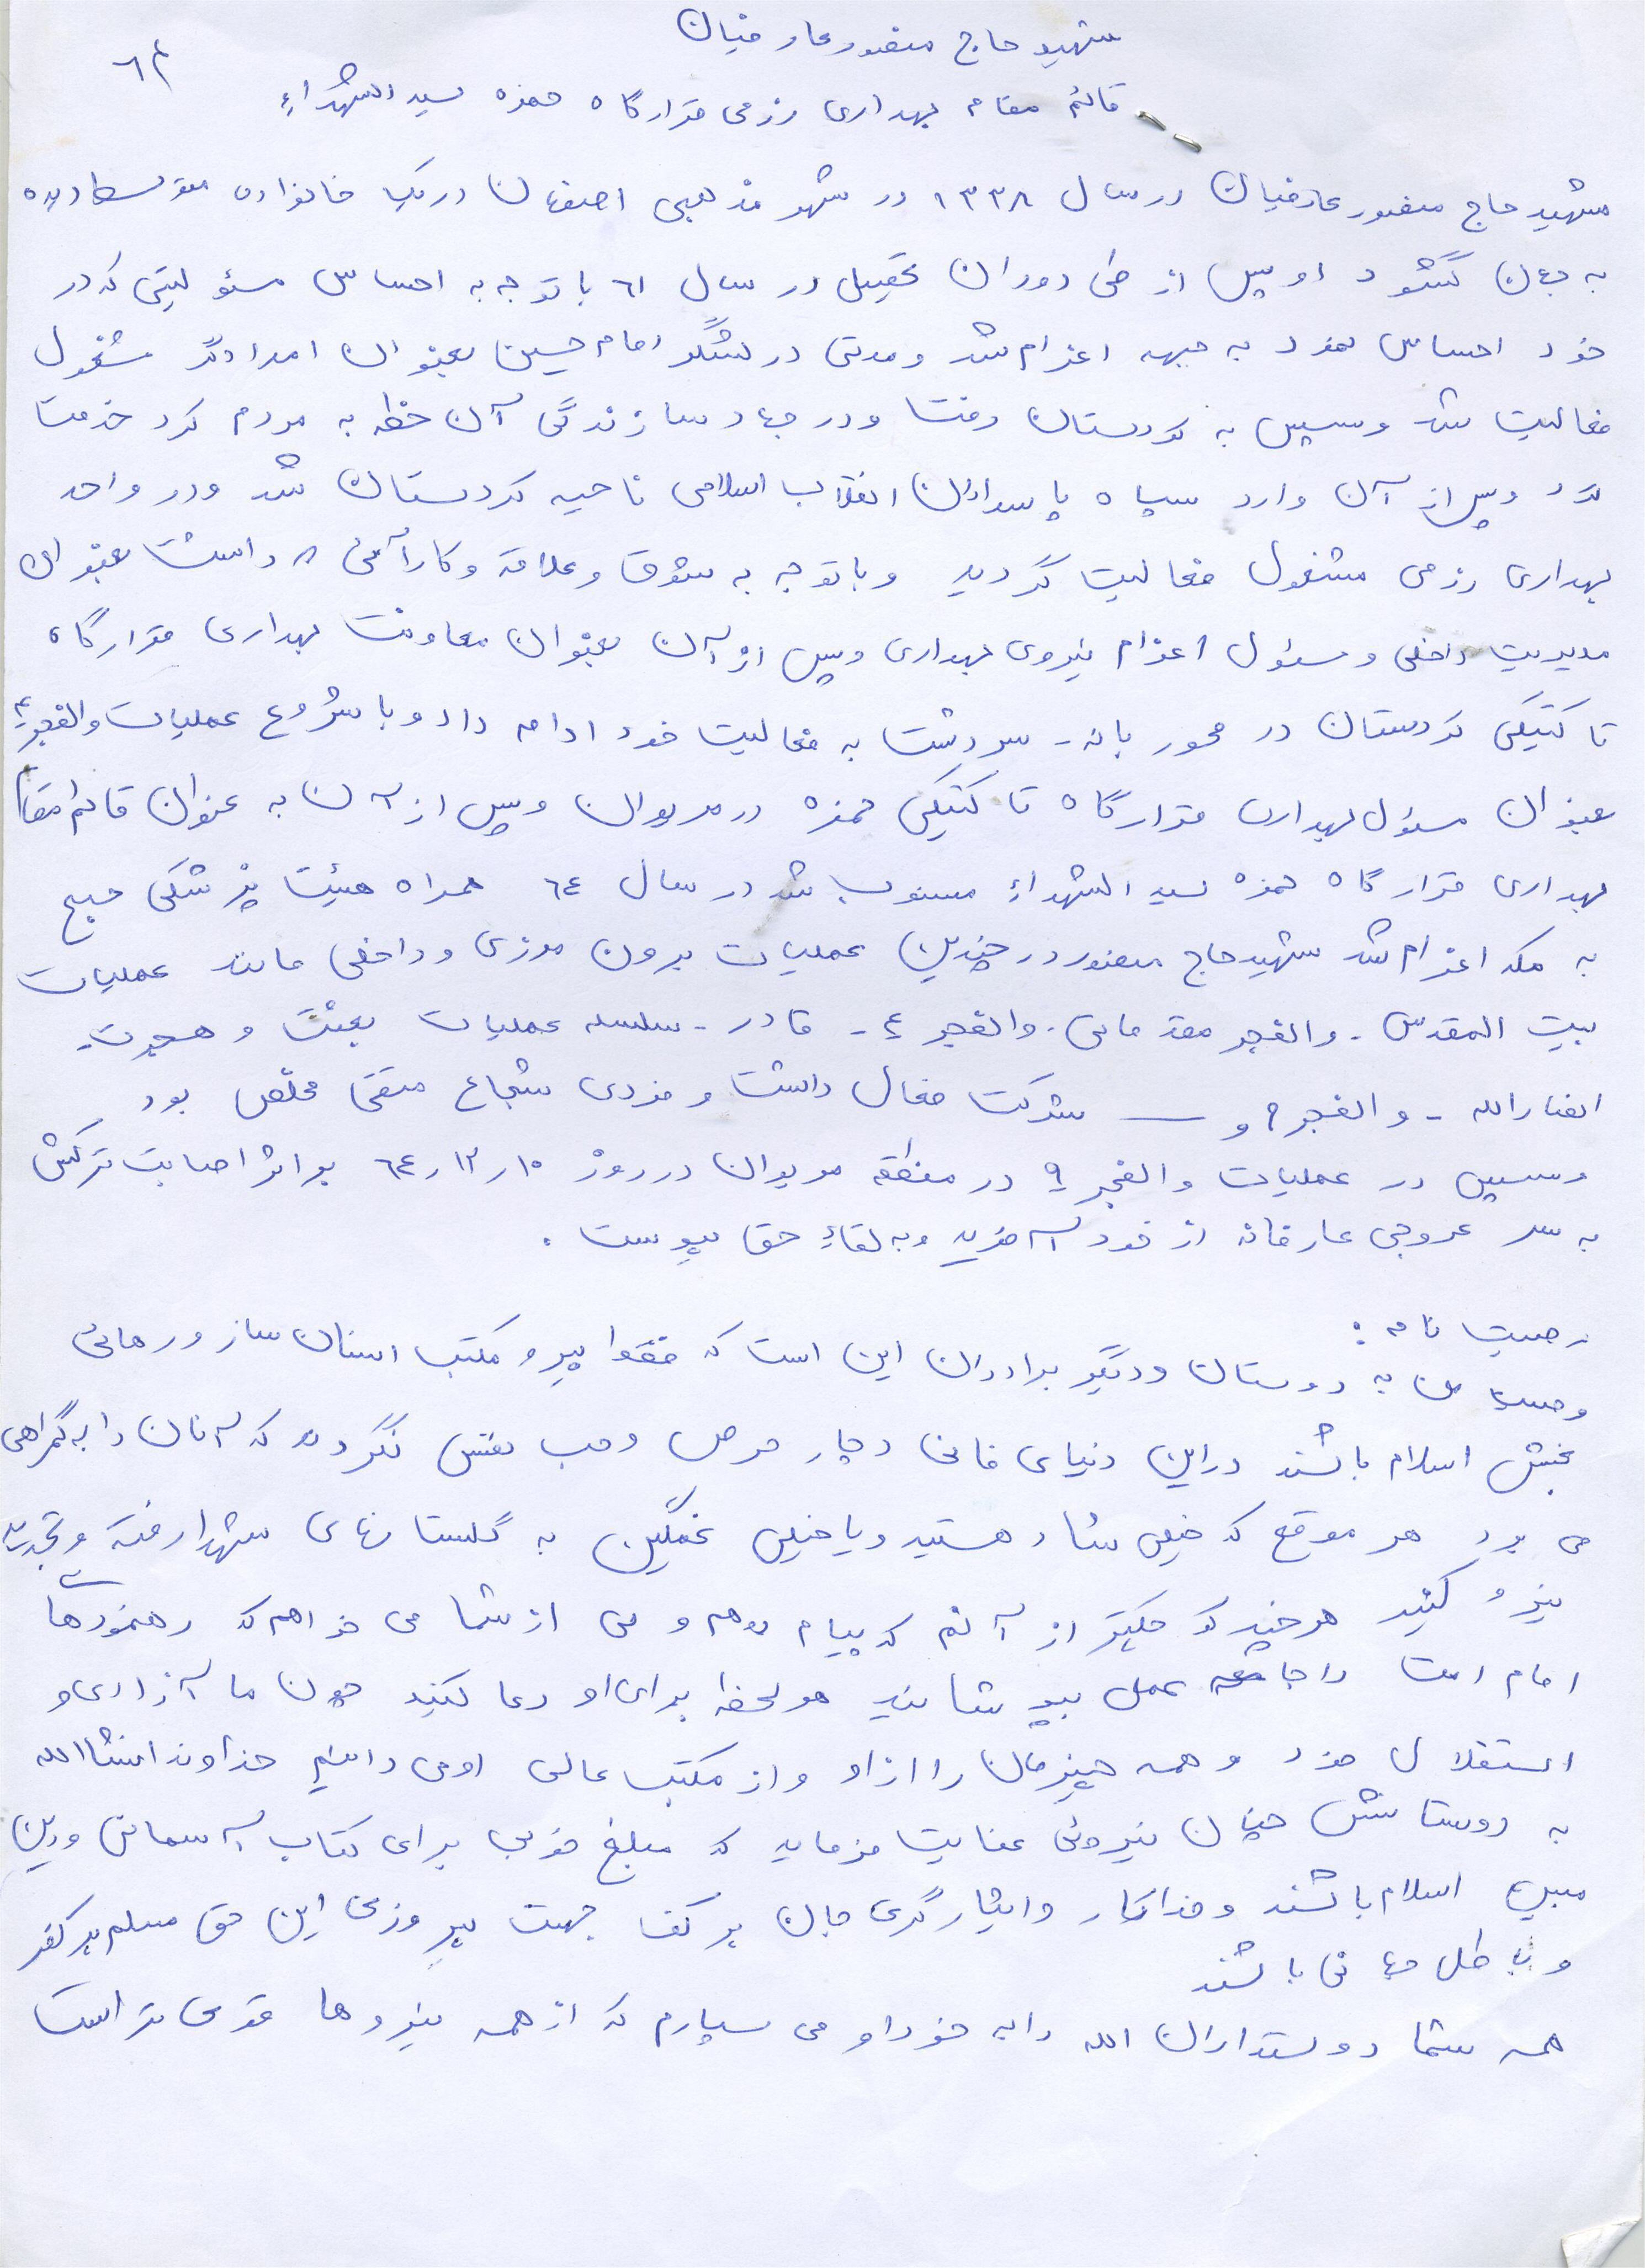 شهید حاج منصور عارفیان
قائم مقام بهداری رزمی قرارگاه حمزه سید الشهداء
شهید حاج منصور عارفیان در سال ۱۳۳۸ در شهر مذهبی اصفهان در یک خانواده متوسط دیده
به جهان گشود او پس از طی دوران تحصیل در سال ٦١ با توجه به احساس مسئولیتی که در
خود احساس نمود به جبهه اعزام شد و مدتی در لشگر امام حسین بعنوان امدادگر مشغول
فعالیت شد و سپس به کردستان رفت و در جهاد سازندگی آن خطه به مردم کرد خدمت
کرد و پس از آن وارد سپاه پاسداران انقلاب اسلامی ناحیه کردستان شد و در واحد
بهداری رزمی مشغول فعالیت گردید و با توجه به شوق و علاقه و کارآئی داشت بعنوان
مدیریت داخلی و مسئول اعزام نیروی بهداری و پس از آن بعنوان معاونت بهداری قرارگاه
تاکتیکی کردستان در محور بانه - سردشت به فعالیت خود ادامه داد و با شروع عملیات والفجر ٤
بعنوان مسئول بهداری قرارگاه تاکتیکی حمزه در مریوان و پس از آن به عنوان قائم مقام
بهداری قرارگاه حمزه سید الشهداء منسوب شد در سال ٦٤ همراه هیئت پزشکی حج
به مکه اعزام شد شهید حاج منصور در چندین عملیات برون مرزی و داخلی مانند عملیات
بیت المقدس - والفجر مقدماتی - والفجر ٤ - قادر - سلسله عملیات بعثت و هجرت -
انصارالله - والفجر ۹ و — شرکت فعال داشت و فردی شجاع متقی مخلص بود
و سپس در عملیات والفجر ۹ در منطقه مریوان در روز ۱۰ر۱۲ر٦٤ بر اثر اصابت ترکش
به سر عروجی عارفانه از خود آفرید و به لقاء حق پیوست .
وصیت نامه :
وصیت من به دوستان و دیگر برادران این است که فقط پیرو مکتب انسان ساز و رهائی
بخش اسلام باشند در این دنیای فانی دچار حرص و حب نفس نگردند که آنان را به گمراهی
می برد هر موقع که خیلی شاد هستید و یا خیلی غمگین به گلستانهای شهدا رفته و تجدید
نیرو کنید هر چند که کوچکتر از آنم که پیام دهم ولی از شما می خواهم که رهنمودهای
امام امت را جامه عمل بپوشانید هر لحظه برای او دعا کنید چون ما آزادی و
استقلال خود و همه چیزمان را از او و از مکتب عالی او می دانیم خداوند انشاالله
به دوستانش چنان نیروئی عنایت فرماید که مبلغ خوبی برای کتاب آسمانی و دین
مبین اسلام باشند و فداکار و ایثارگری جان بر کف جهت پیروزی این حق مسلم بر کفر
و باطل جهانی باشند
همه شما دوستداران الله را به خود او می سپارم که از همه نیروها قوی تر است